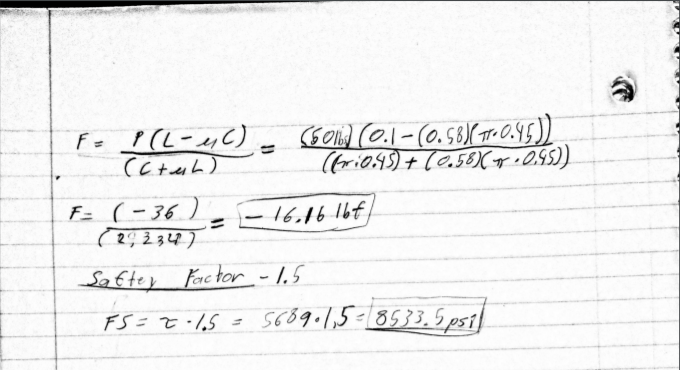 F = P(L-μC) / (C+μL) = (50lb)(0.1-(0.58)(π·0.45)) / ((π·0.45)+(0.58)(π·0.45))
F = (-36) / (2,2348) = -16.16 lbf
Saftey Factor - 1.5
FS = τ·1.5 = 5689·1,5 = 8533.5 psi